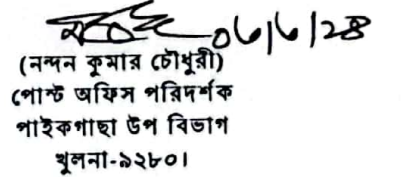 06/6/28
(নন্দন কুমার চৌধুরী)
পোস্ট অফিস পরিদর্শক
পাইকগাছা উপ বিভাগ
খুলনা-৯২৮০।